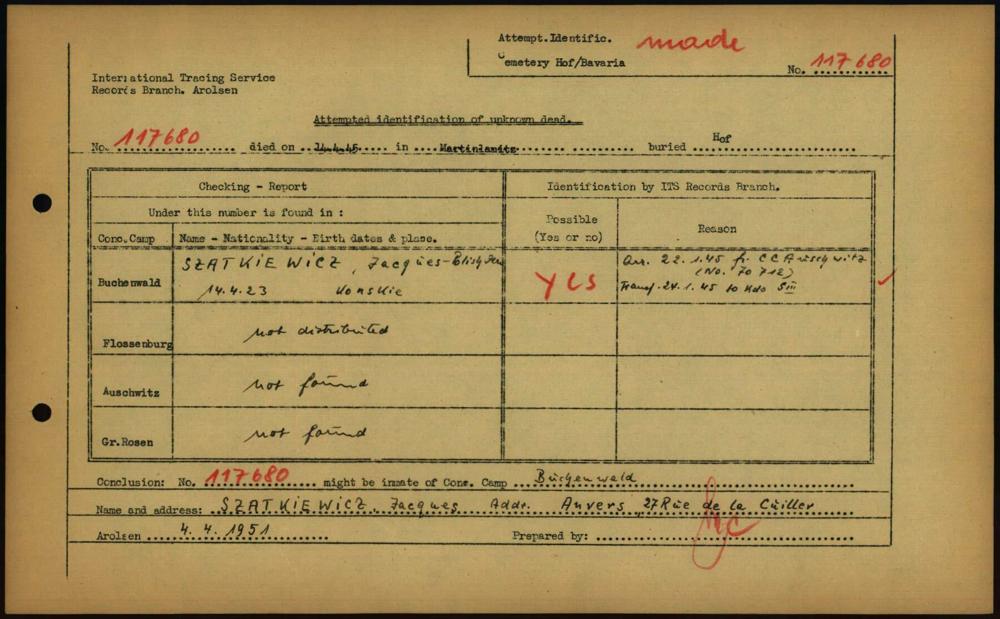 Attempt.Identific. made
Cemetery Hof/Bavaria
No. 117680
International Tracing Service
Records Branch. Arolsen
Attempted identification of unknown dead.
No. 117680 died on 14.4.45 in Martinlamitz buried Hof
Checking - Report
Identification by ITS Records Branch.
Under this number is found in :
Possible
(Yes or no)
Reason
Conc.Camp
Name - Nationality - Birth dates & place.
Buchenwald
SZATKIEWICZ, Jacques-
14.4.23 Konskie
YES
arr. 22.1.45 fr. CC Auschwitz
(No. 70712)
Transf. 24.1.45 to Kdo SIII
Flossenburg
not distributed
Auschwitz
not found
Gr.Rosen
not found
Conclusion: No. 117680 might be inmate of Conc. Camp Buchenwald
Name and address: SZATKIEWICZ, Jacques Addr. Anvers, 27 Rue de la Cuiller
Arolsen 4.4.1951
Prepared by: